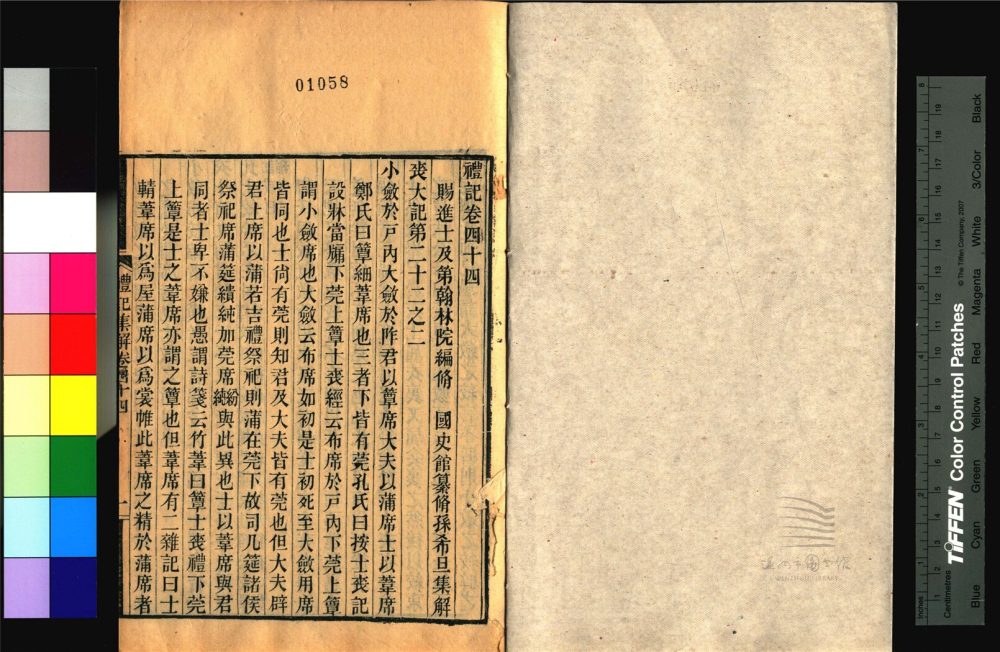 01058
禮記卷四十四
賜進士及第翰林院編脩　國史館纂脩孫希旦集解
喪大記第二十二之二
小斂於戶內大斂於阼君以簟席大夫以蒲席士以葦席
鄭氏曰簟細葦席也三者下皆有莞孔氏曰按士喪記
設牀當牖下莞上簟士喪經云布席於戶內下莞上簟
謂小斂席也大斂云布席如初是士初死至大斂用席
皆同也士尙有莞則知君及大夫皆有莞也但大夫辟
君上席以蒲若吉禮祭祀則蒲在莞下故司几筵諸侯
祭祀席蒲筵繢純加莞席紛純與此異也士以葦席與君
同者士卑不嫌也愚謂詩箋云竹葦曰簟士喪禮下莞
上簟是士之葦席亦謂之簟也但葦席有二雜記曰士
輤葦席以爲屋蒲席以爲裳帷此葦席之精於蒲席者
禮記集解卷四十四
一
Inches
Centimetres
TIFFEN® Color Control Patches
© The Tiffen Company, 2007
Blue
Cyan
Green
Yellow
Red
Magenta
White
3/Color
Black
温州市图书馆
WENZHOU LIBRARY